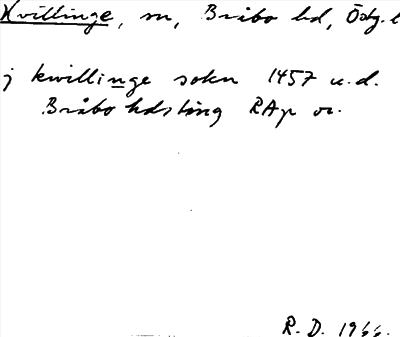 Kvillinge, sn, Bråbo hd, Ög. l
j kwillinge sokn 1457 u.d.
Bråbo hdsting RAp or.
R. D. 1966.